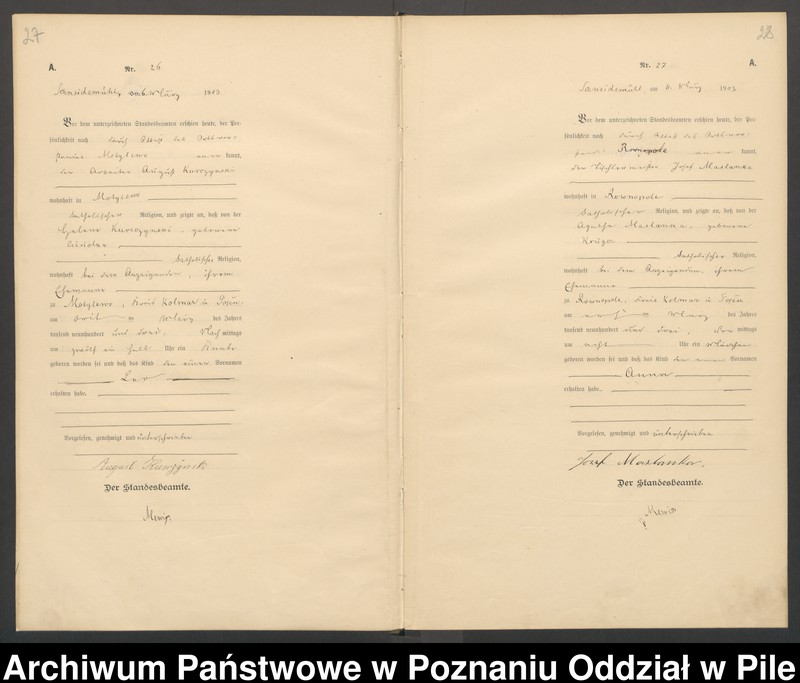 27
A.
Nr. 26
1903
Vor dem unterzeichneten Standesbeamten erschien heute, der Per-
sönlichkeit nach
Motylewo kannt,
der August Kurczynski
wohnhaft in Motylewo
katholischer Religion, und zeigte an, daß von der
Helene Kurczynski, geborene
katholischer Religion,
wohnhaft bei dem Anzeigenden, ihrem
Ehemanne
zu Motylewo, Kreis Kolmar in Posen
am des Jahres
tausend neunhundert und drei, Nach mittags
um zwölf ein halb Uhr ein Knabe
geboren worden sei und daß das Kind den einen Vornamen
Leo
erhalten habe.
Vorgelesen, genehmigt und unterschrieben
August Kurczynski
Der Standesbeamte.
28
Nr. 27
A.
Schneidemühl, am 1903
Vor dem unterzeichneten Standesbeamten erschien heute, der Per-
sönlichkeit nach durch
Rownopole kannt,
der Tischlermeister Josef Maslanka
wohnhaft in Rownopole
katholischer Religion, und zeigte an, daß von der
Agathe Maslanka, geborene
Krüger
katholischer Religion,
wohnhaft bei dem Anzeigenden, ihrem
Ehemanne
zu Rownopole, Kreis Kolmar in Posen
am des Jahres
tausend neunhundert und drei, Vor mittags
um acht Uhr ein Mädchen
geboren worden sei und daß das Kind den einen Vornamen
Anna
erhalten habe.
Vorgelesen, genehmigt und unterschrieben
Jozef Maslanka.
Der Standesbeamte.
Archiwum Państwowe w Poznaniu Oddział w Pile